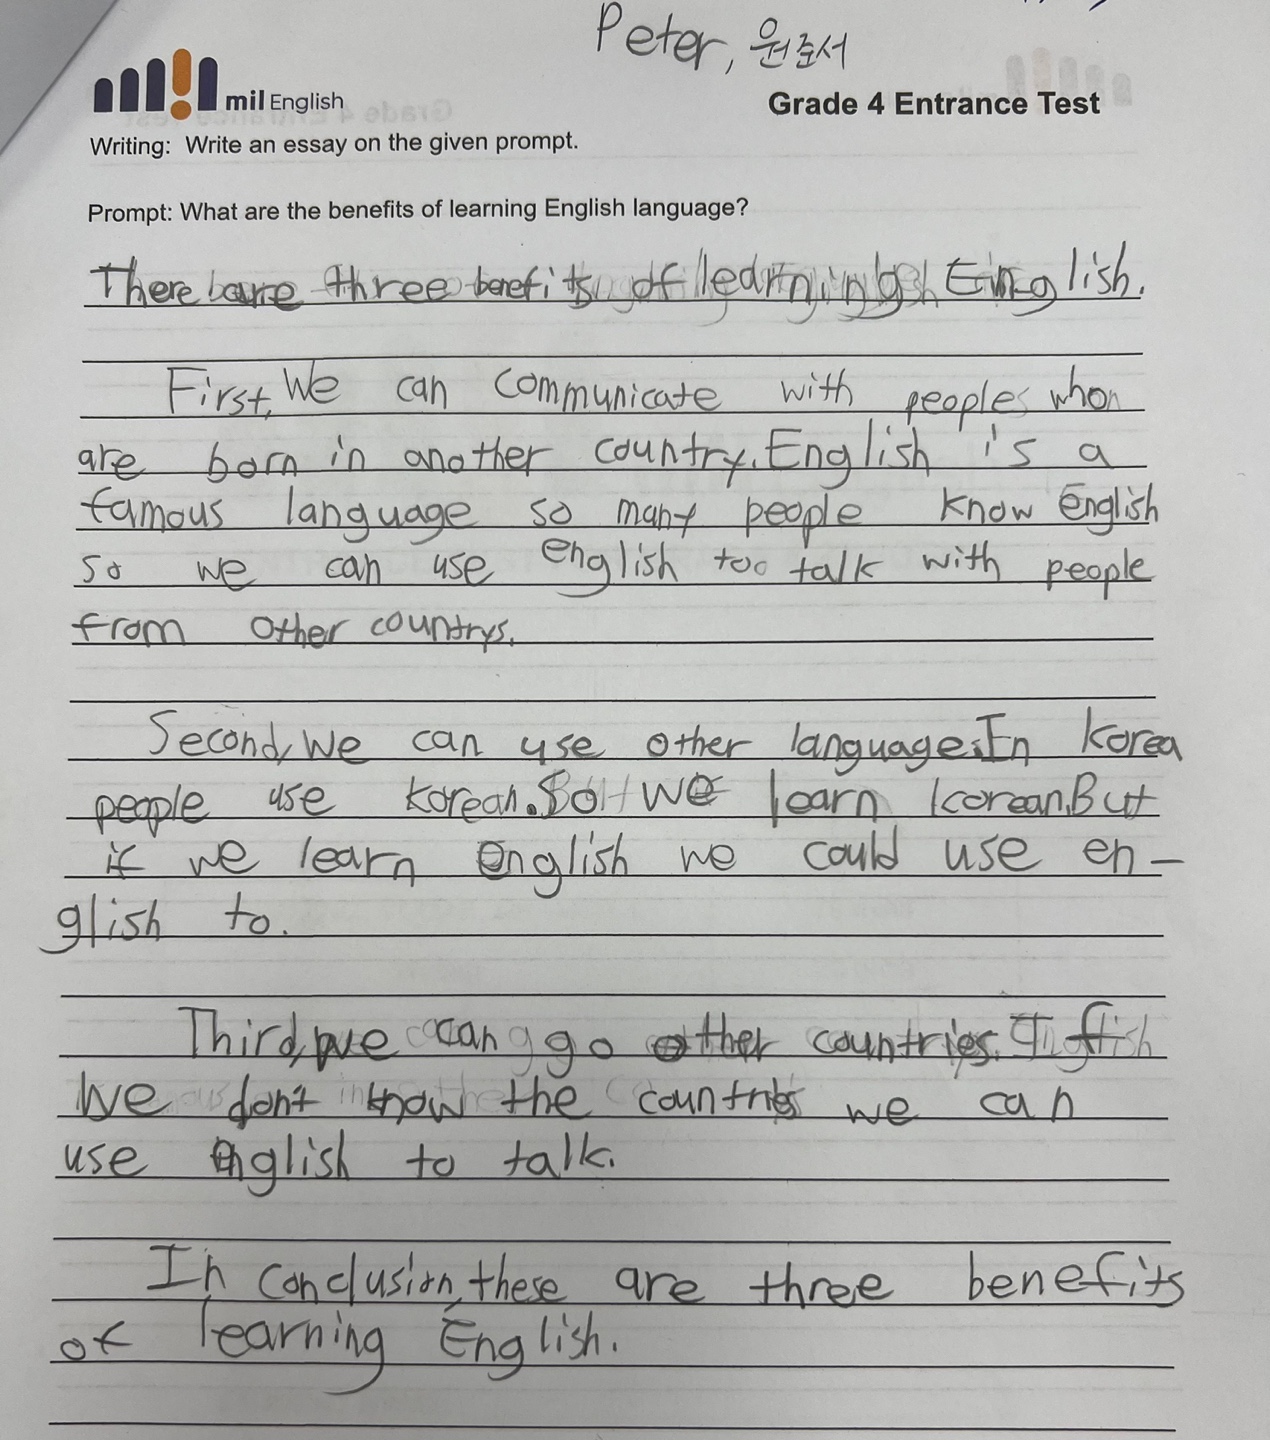 Peter, 원준서
mil English
Grade 4 Entrance Test
Writing: Write an essay on the given prompt.
Prompt: What are the benefits of learning English language?
There are three benefits of learning English.
First, We can communicate with people who
are born in another country. English is a
famous language so many people know English
so we can use english too talk with people
from other countrys.
Second, We can use other language. In Korea
people use korean. So we learn korean. But
if we learn english we could use en-
glish to.
Third, we can go other countries. If
We don't know the countries we can
use english to talk.
In conclusion, these are three benefits
of learning English.